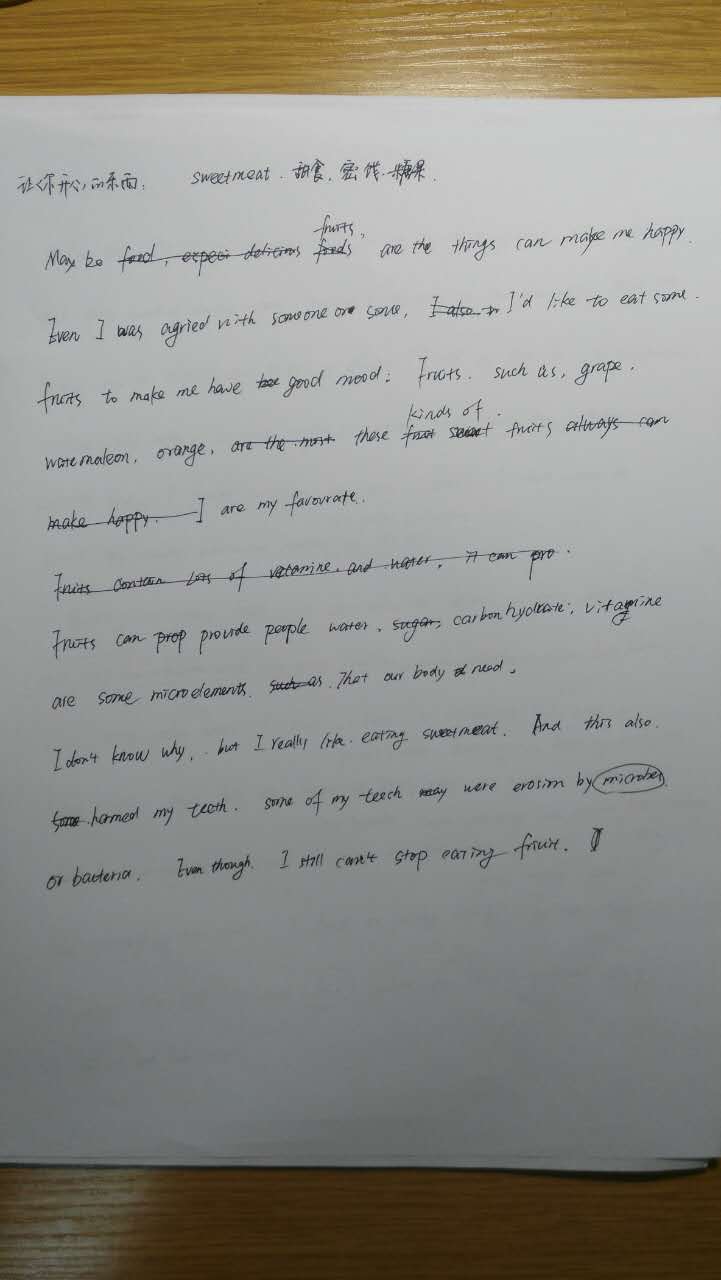 让你开心的东西: sweetmeat. 甜食, 密饯, 糖果.
fruits,
May be food, expeci delicious foods are the things can make me happy.
Even I was agried with someone or some, I also I'd like to eat some.
fruits to make me have good mood: Fruits. such as, grape,
kinds of.
watermaleon, orange, are the most these fruit fruits always can
make happy. I are my favourate.
Fruits contain lots of vatamine, and water, it can pro.
Fruits can prop provide people water, sugar, carbonhydreate, vitamine
are some microelements such as. That our body need.
I don't know why, but I really like eating sweetmeat. And this also.
some harmed my teeth. some of my teech may were erosim by microbes
or bacteria. Even though. I still can't stop eating friut.